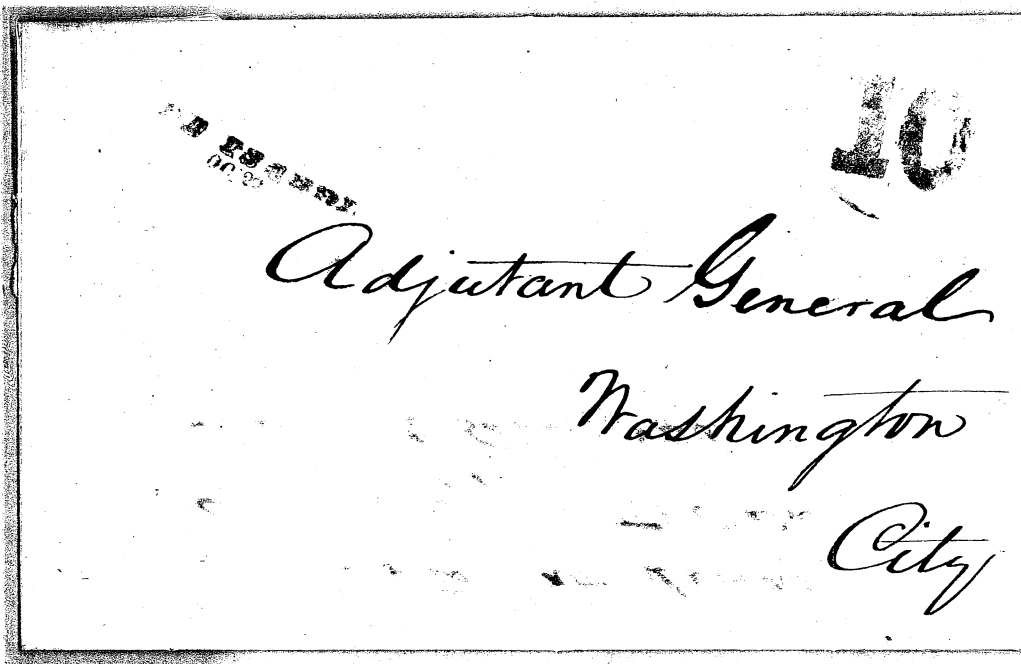 10
Adjutant General
Washington
City